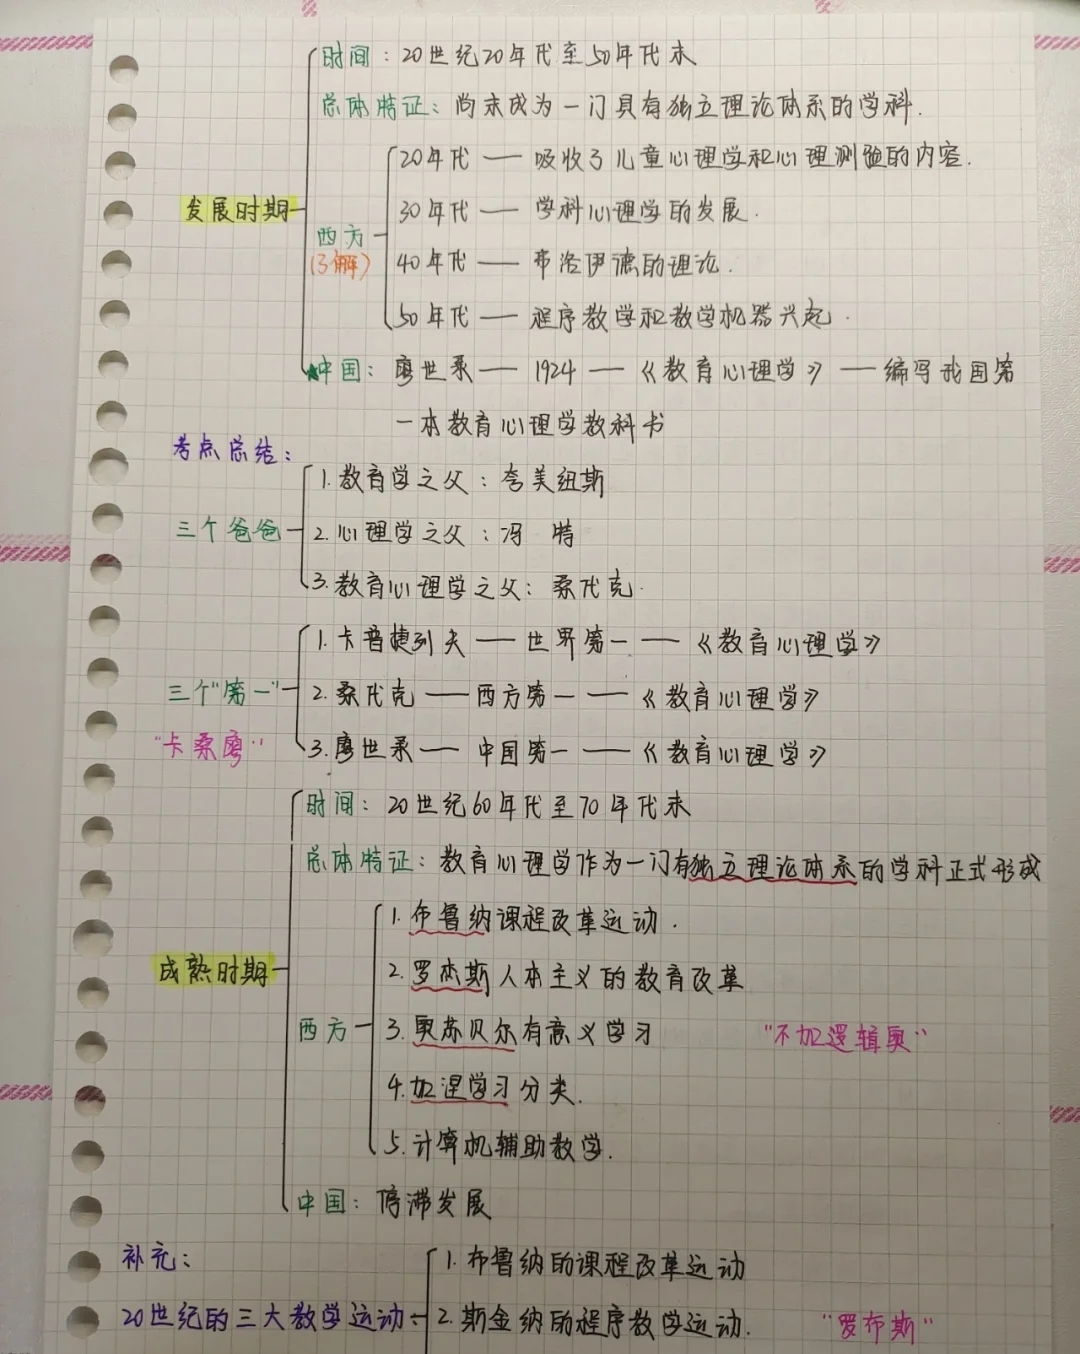 时间：20世纪20年代至50年代末
总体特证：尚未成为一门具有独立理论体系的学科.
发展时期
西方
(了解)
20年代 — 吸收了儿童心理学和心理测验的内容.
30年代 — 学科心理学的发展.
40年代 — 弗洛伊德的理论.
50年代 — 程序教学和教学机器兴起.
★中国：廖世承 — 1924 — 《教育心理学》 — 编写我国第
一本教育心理学教科书
考点总结：
三个爸爸
1.教育学之父：夸美纽斯
2.心理学之父：冯 特
3.教育心理学之父：桑代克.
三个"第一"
"卡桑廖"
1.卡普捷列夫 — 世界第一 — 《教育心理学》
2.桑代克 — 西方第一 — 《教育心理学》
3.廖世承 — 中国第一 — 《教育心理学》
时间：20世纪60年代至70年代末
总体特证：教育心理学作为一门有独立理论体系的学科正式形成
成熟时期
西方
1.布鲁纳课程改革运动.
2.罗杰斯人本主义的教育改革
3.奥苏贝尔有意义学习
"不加逻辑奥"
4.加涅学习分类.
5.计算机辅助教学.
中国：停滞发展
补充：
20世纪的三大教学运动：
1.布鲁纳的课程改革运动
2.斯金纳的程序教学运动.
"罗布斯"